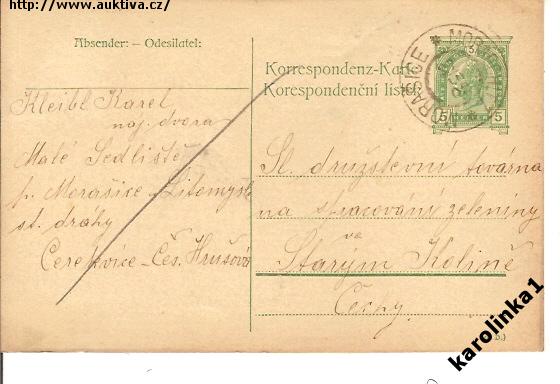 http://www.auktiva.cz/
Absender: — Odesílatel:
Korrespondenz-Karte
Korespondenční lístek
5
5
Kleibl Karel
naj. dvora
Malé Sedliště
p. Morašice Litomyšl
st. drahy
Cerekvice-Čes. Hrušová
Sl. družstevní továrna
na spracování zeleniny
ve
Starým Kolíně
Čechy
karolinka1